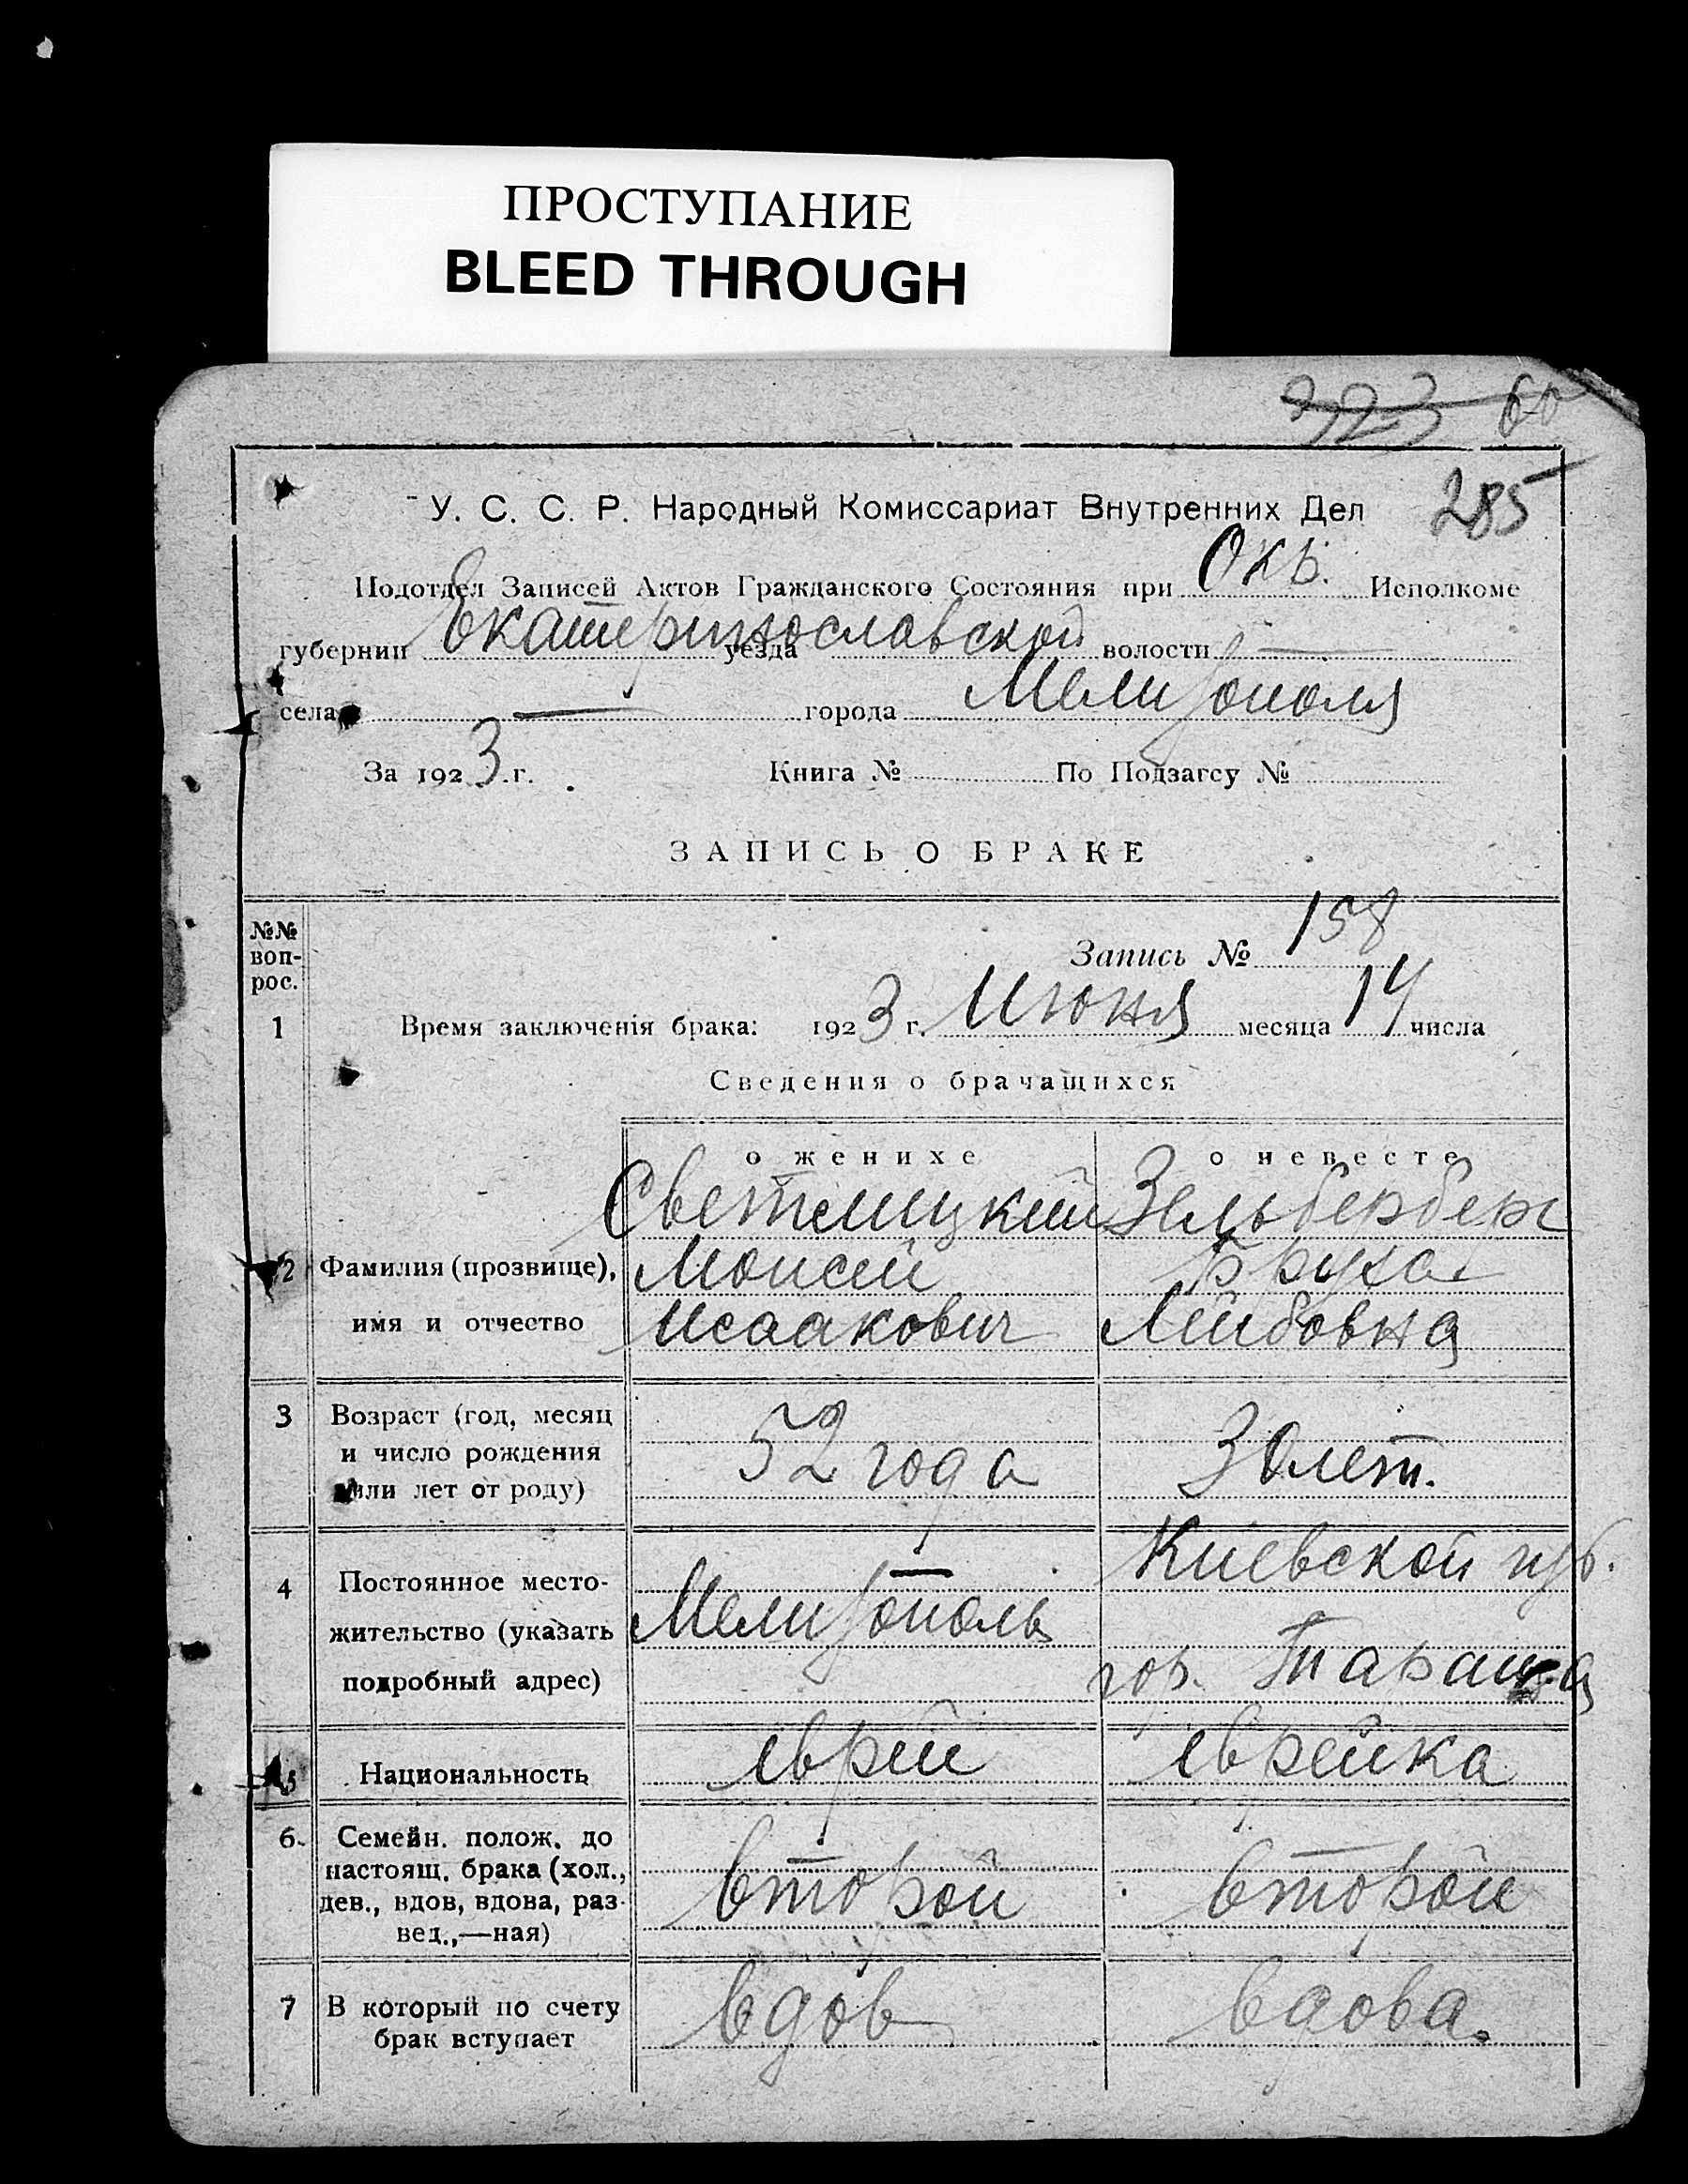 ПРОСТУПАНИЕ
BLEED THROUGH
323 60
285
У. С. С. Р. Народный Комиссариат Внутренних Дел
Подотдел Записей Актов Гражданского Состояния при Окр. Исполкоме
губернии Екатеринославской уезда волости —
села — города Мелитополя
За 1923 г. Книга № По Подзагсу №
ЗАПИСЬ О БРАКЕ
№№ воп-рос.
Запись № 158
1 Время заключенія брака: 1923 г. Июня месяца 14 числа
Сведения о брачащихся
о женихе о невесте
Светлицкий Зельберберг
2 Фамилия (прозвище), Моисей Бруха
имя и отчество Исаакович Лейбовна
3 Возраст (год, месяц
и число рождения 52 года 30 лет.
или лет от роду)
Киевской губ.
4 Постоянное место-
жительство (указать Мелитополь
подробный адрес) гор. Тараща
5 Национальность еврей еврейка
6. Семейн. полож. до
настоящ. брака (хол.,
дев., вдов, вдова, раз- второй второй
вед.,—ная)
7 В который по счету вдов вдова.
брак вступает